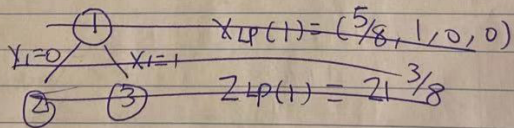 1 X_LP(1) = (5/8, 1, 0, 0)
X1=0 X1=1
2 3 Z_LP(1) = 21 3/8